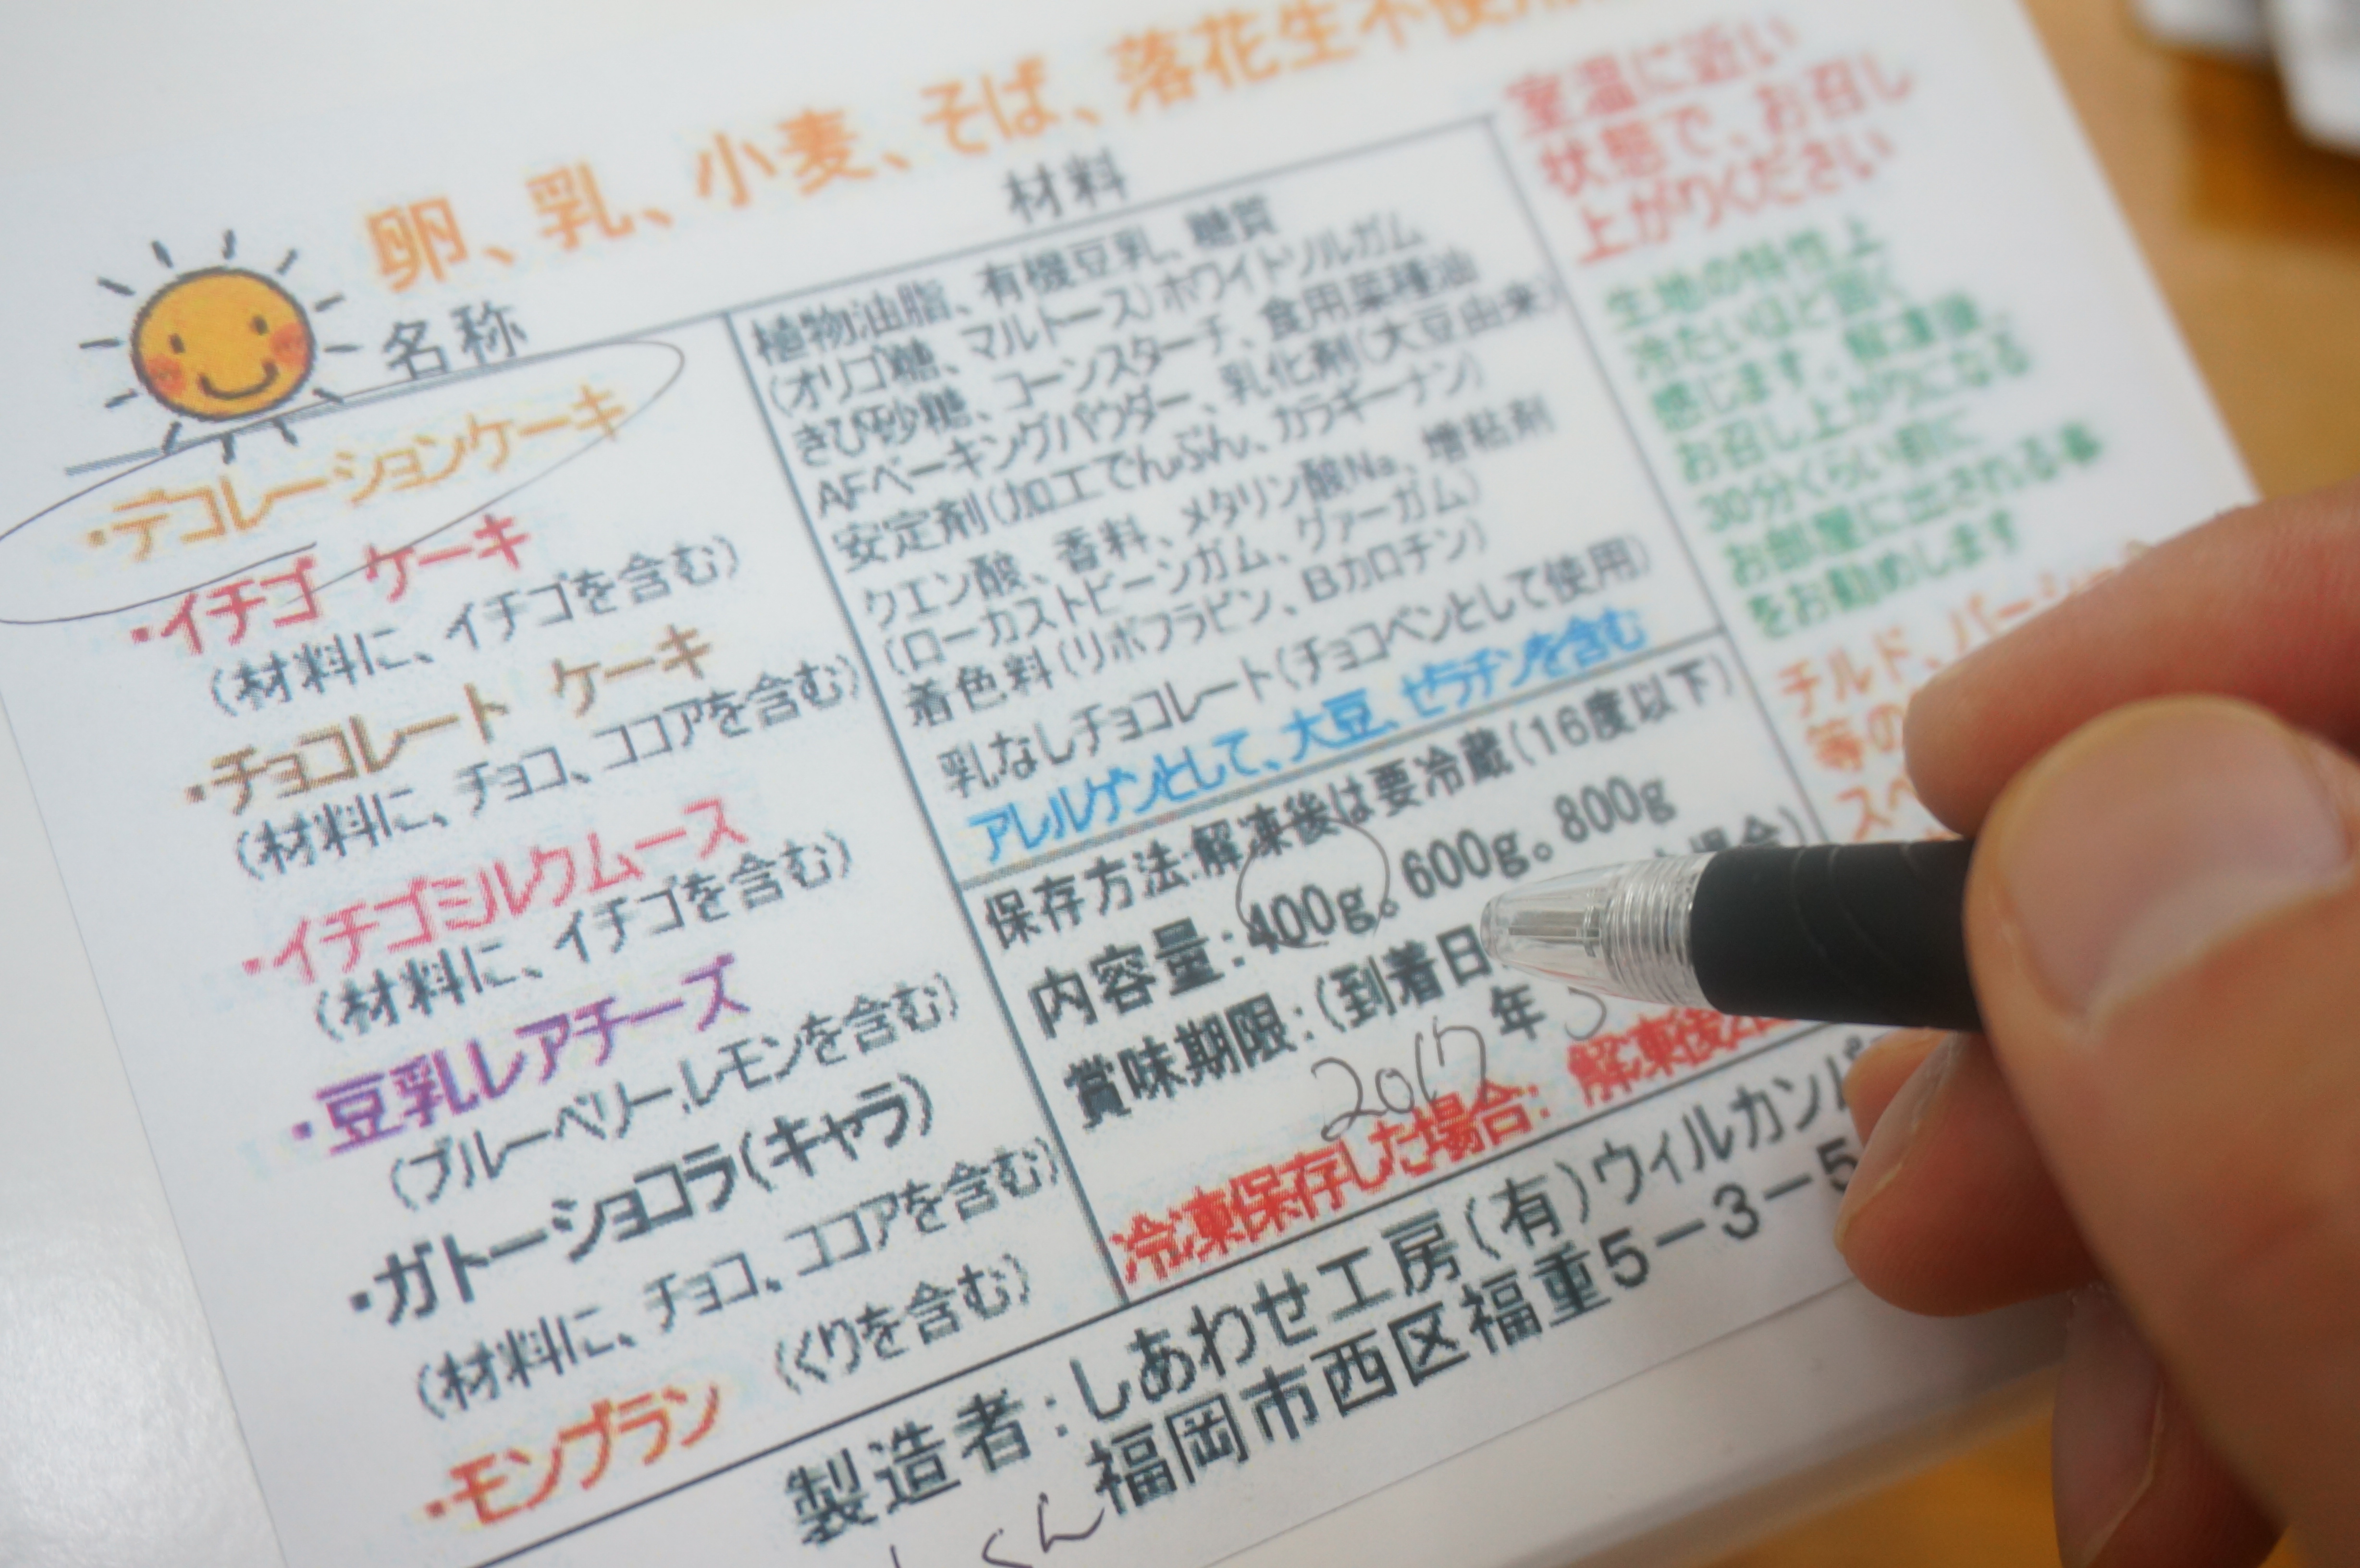 卵、乳、小麦、そば、落花生不使用
名称
・デコレーションケーキ
・イチゴ ケーキ
(材料に、イチゴを含む)
・チョコレート ケーキ
(材料に、チョコ、ココアを含む)
・イチゴミルクムース
(材料に、イチゴを含む)
・豆乳レアチーズ
(ブルーベリー,レモンを含む)
・ガトーショコラ(キャラ)
(材料に、チョコ、ココアを含む)
・モンブラン (くりを含む)
材料
植物油脂、有機豆乳、糖質
(オリゴ糖、マルトース)ホワイトソルガム
きび砂糖、コーンスターチ、食用菜種油
AFベーキングパウダー、乳化剤(大豆由来)
安定剤(加工でんぷん、カラギーナン)
クエン酸、香料、メタリン酸Na、増粘剤
(ローカストビーンガム、グァーガム)
着色料(リボフラビン、Bカロチン)
乳なしチョコレート(チョコペンとして使用)
アレルゲンとして、大豆、ゼラチンを含む
保存方法:解凍後は要冷蔵(16度以下)
内容量:400g。600g。800g
賞味期限:(到着日 場合)
2017年 3
冷凍保存した場合: 解凍後
製造者:しあわせ工房(有)ウィルカンパ
福岡市西区福重5－3－5
くん
室温に近い
状態で、お召し
上がりください
生地の特性上
冷たいほど固く
感じます。解凍後、
お召し上がりになる
30分くらい前に
お部屋に出される事
をお勧めします
チルド、パーシャ
等の
スペ